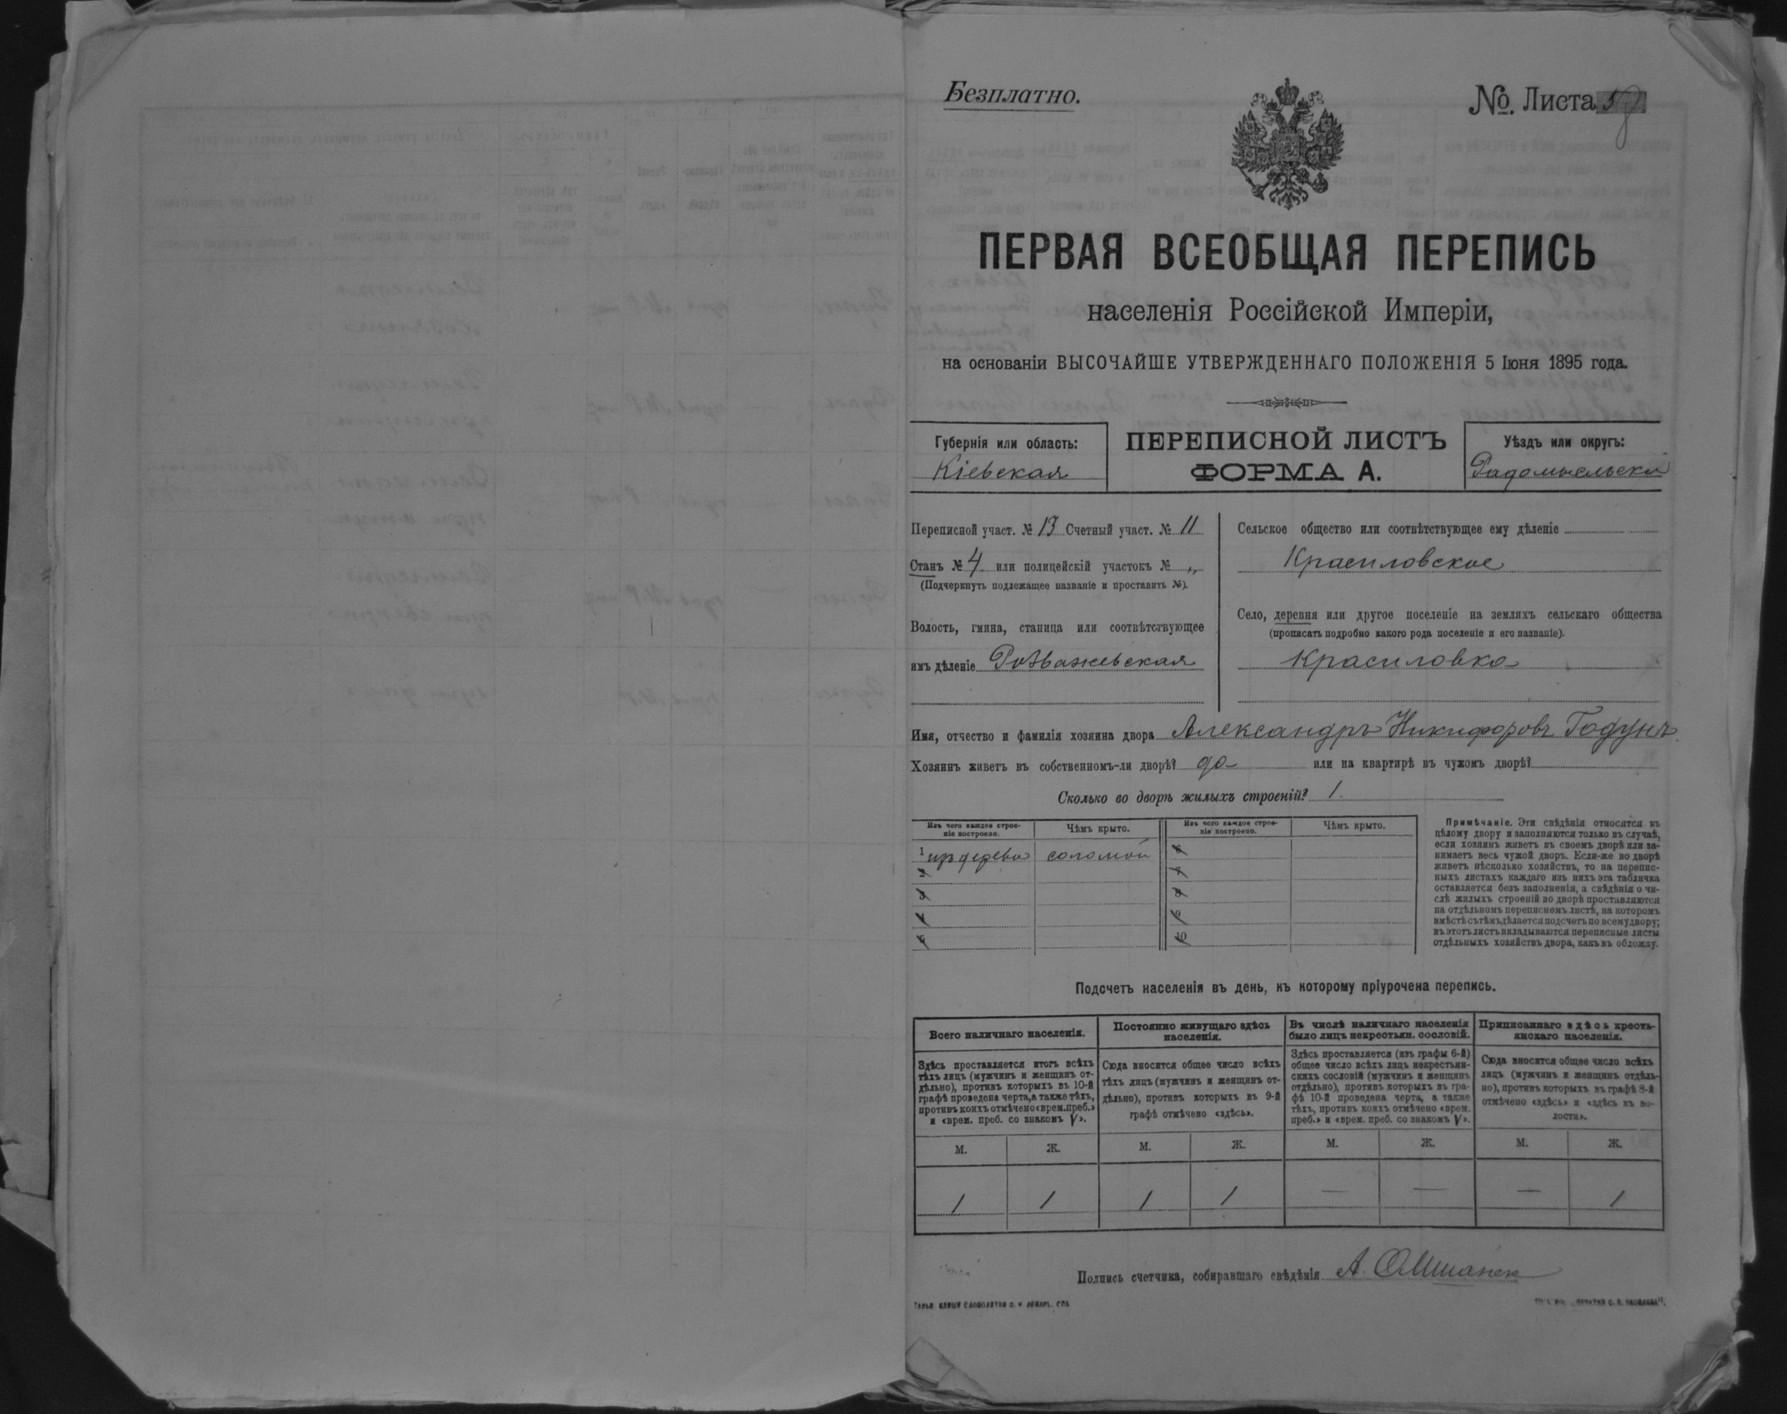 Безплатно.
№. Листа
ПЕРВАЯ ВСЕОБЩАЯ ПЕРЕПИСЬ
населенія Россійской Имперіи,
на основаніи ВЫСОЧАЙШЕ УТВЕРЖДЕННАГО ПОЛОЖЕНІЯ 5 Іюня 1895 года.
Губернія или область:
Кіевская
ПЕРЕПИСНОЙ ЛИСТЪ
ФОРМА А.
Уѣздъ или округъ:
Радомысльскій
Переписной участ. № 13 Счетный участ. № 11
Станъ № 4 или полицейскій участокъ № „
(Подчеркнуть подлежащее названіе и проставить №).
Волость, гмина, станица или соотвѣтствующее
имъ дѣленіе Розважевская
Сельское общество или соотвѣтствующее ему дѣленіе
Красиловское
Село, деревня или другое поселеніе на земляхъ сельскаго общества
(прописать подробно какого рода поселеніе и его названіе).
Красиловка
Имя, отчество и фамилія хозяина двора Александръ Никифоровъ Годунъ
Хозяинъ живетъ въ собственномъ-ли дворѣ? да или на квартирѣ въ чужомъ дворѣ?
Сколько во дворѣ жилыхъ строеній? 1.
Изъ чего каждое строеніе построено.
Чѣмъ крыто.
Изъ чего каждое строеніе построено.
Чѣмъ крыто.
1 изъ дерева соломой 6
2 7
3 8
4 9
5 10
Примѣчаніе. Эти свѣдѣнія относятся къ
цѣлому двору и заполняются только въ случаѣ,
если хозяинъ живетъ въ своемъ дворѣ или за-
нимаетъ весь чужой дворъ. Если-же во дворѣ
живетъ нѣсколько хозяйствъ, то на перепис-
ныхъ листахъ каждаго изъ нихъ эта табличка
оставляется безъ заполненія, а свѣдѣнія о чи-
слѣ жилыхъ строеній во дворѣ проставляются
на отдѣльномъ переписномъ листѣ, на которомъ
вмѣстѣ съ тѣмъ дѣлается подсчетъ по всему двору;
въ этотъ листъ вкладываются переписные листы
отдѣльныхъ хозяйствъ двора, какъ въ обложку.
Подсчетъ населенія въ день, къ которому пріурочена перепись.
Всего наличнаго населенія.
Здѣсь проставляется итогъ всѣхъ
тѣхъ лицъ (мужчинъ и женщинъ от-
дѣльно), противъ которыхъ въ 10-й
графѣ проведена черта, а также тѣхъ,
противъ коихъ отмѣчено «врем. преб.»
и «врем. преб. со знакомъ V».
Постоянно живущаго здѣсь
населенія.
Сюда вносится общее число всѣхъ
тѣхъ лицъ (мужчинъ и женщинъ от-
дѣльно), противъ которыхъ въ 9-й
графѣ отмѣчено «здѣсь».
Въ числѣ наличнаго населенія
было лицъ некрестьян. сословій.
Здѣсь проставляется (изъ графы 6-й)
общее число всѣхъ лицъ некрестьян-
скихъ сословій (мужчинъ и женщинъ
отдѣльно), противъ которыхъ въ гра-
фѣ 10-й проведена черта, а также
тѣхъ, противъ коихъ отмѣчено «врем.
преб.» и «врем. преб. со знакомъ V».
Приписаннаго здѣсь кресть-
янскаго населенія.
Сюда вносится общее число всѣхъ
лицъ (мужчинъ и женщинъ отдѣль-
но), противъ которыхъ въ графѣ 8-й
отмѣчено «здѣсь» и «здѣсь въ во-
лости».
М. Ж. М. Ж. М. Ж. М. Ж.
1 1 1 1 — — — 1
Подпись счетчика, собиравшаго свѣдѣнія А.